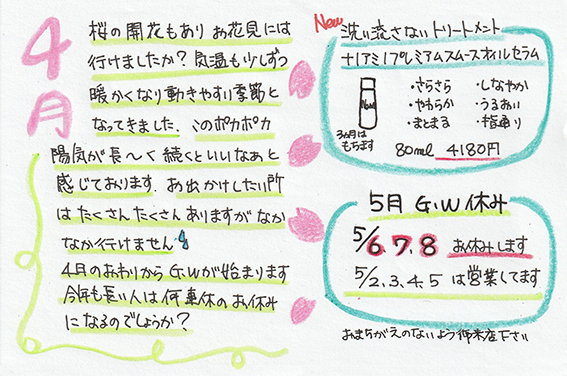 4月
桜の開花もあり お花見には
行けましたか？気温も少しずつ
暖かくなり動きやすい季節と
なってきました。このポカポカ
陽気が長〜く続くといいなぁと
感じております。お出かけしたい所
はたくさんたくさんありますがなか
なか行けません
4月のおわりからG.Wが始まります
今年も長い人は何連休のお休み
になるのでしょうか？
New
洗い流さないトリートメント
ナノアミノプレミアムスムースオイルセラム
・さらさら ・しなやか
・やわらか ・うるおい
・まとまる ・指通り
3ヵ月は
もちます
80ml 4180円
5月 G.W 休み
5/6.7.8 お休みします
5/2.3.4.5 は営業してます
おまちがえのないよう御来店下さい